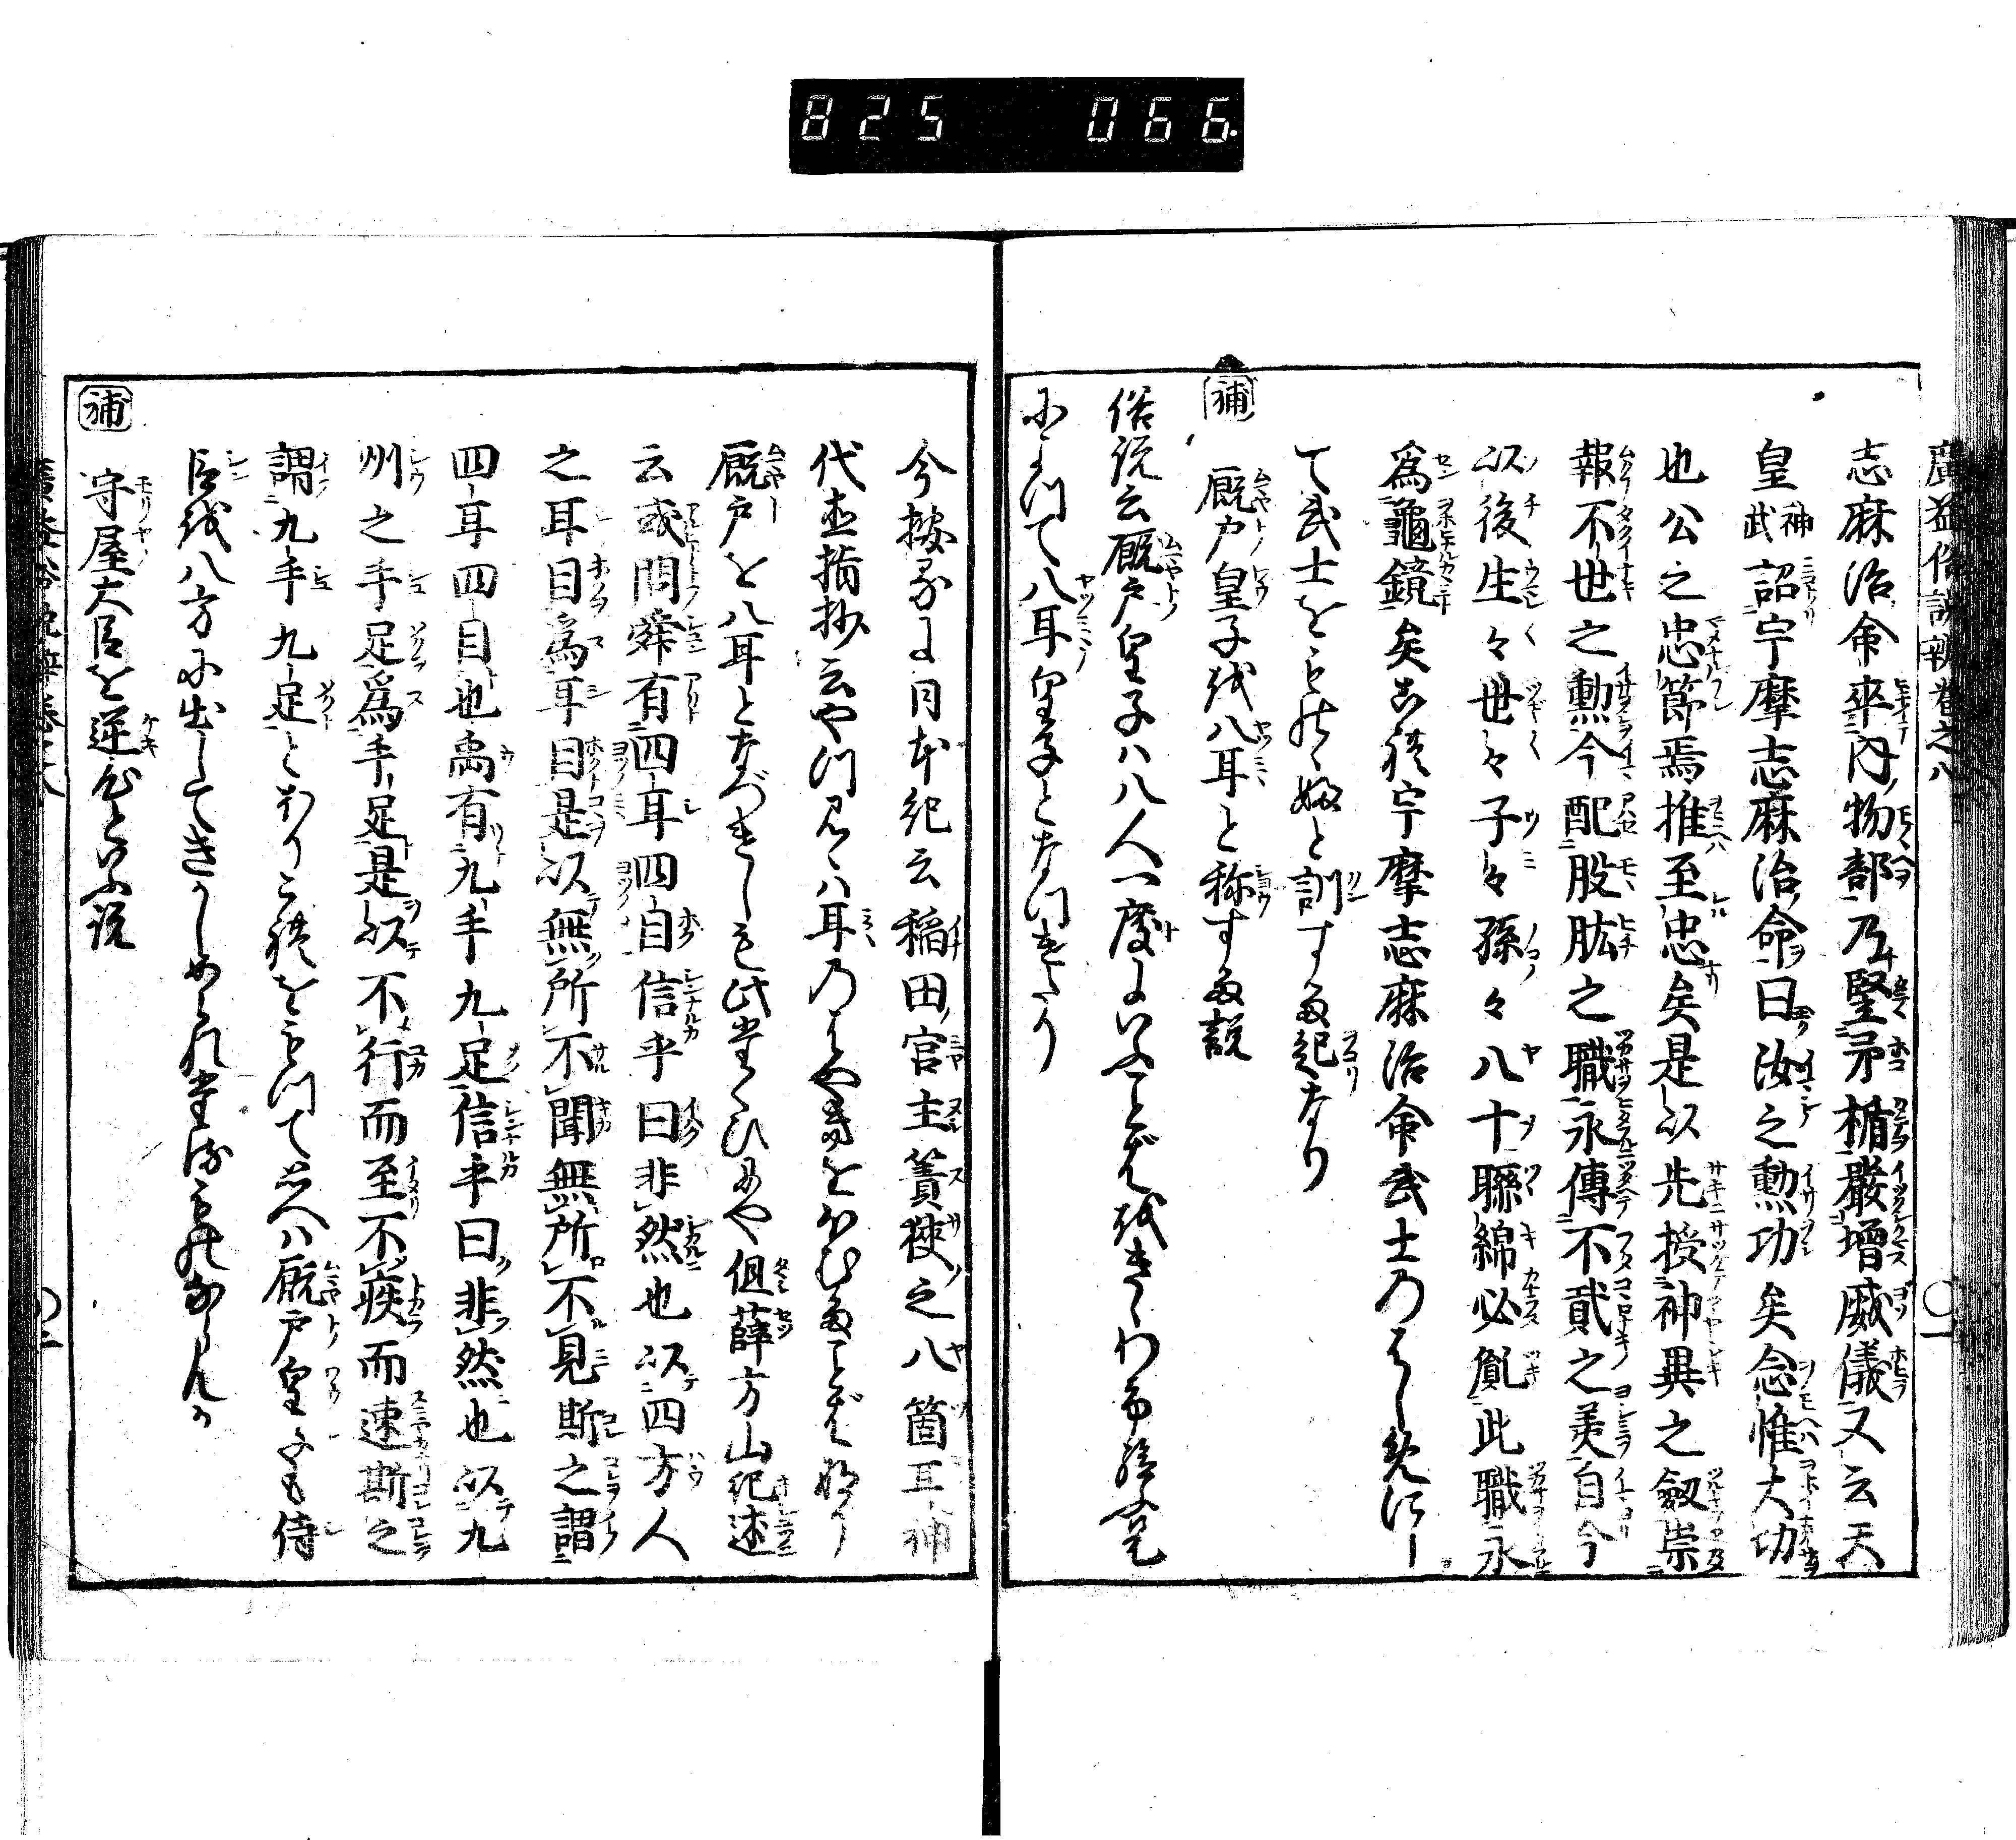 825 066
廣益俗説辨卷之八
志麻治命率内物部乃竪矛楯嚴增威儀又云天
皇神武詔宇摩志麻治命曰汝之勲功矣念惟大功
也公之忠節焉推至忠矣是以先授神異之劔崇
報不世之勲今配股肱之職永傳不貳之美自今
以後生々世々子々孫々八十聯綿必胤此職永
爲龜鏡矣これ宇摩志麻治命武士のはじめにし
て武士をものゝふと訓する起なり
補
厩戸皇子を八耳と称する説
俗説云厩戸皇子ハ八人一度にいふことばをきゝわけ給ふ
によつて八耳皇子となつけたり
今按るに日本紀云稲田宮主簀狹之八箇耳神
代直指抄云やつみゝハ耳のはやきをほむることばなり
厩戸を八耳となづけしも此たぐひにや但薛方山紀述
云或問舜有四耳四目信乎曰非然也以四方人
之耳目爲耳目是以無所不聞無所不見斯之謂
四耳四目也禹有九手九足信乎曰非然也以九
州之手足爲手足是以不行而至不疾而速斯之
謂九手九足とありこれをもつて思へハ厩戸皇子も侍
臣を八方に出してきかしめられたるものならんか
補
守屋大臣を逆臣といふ説